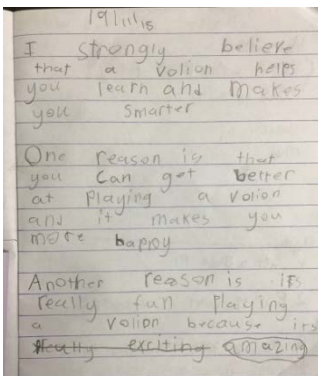 19/11/15
I strongly believe
that a volion helps
you learn and makes
you smarter
One reason is that
you can get better
at playing a volion
and it makes you
more happy
Another reason is its
really fun playing
a volion because its
really exciting amazing